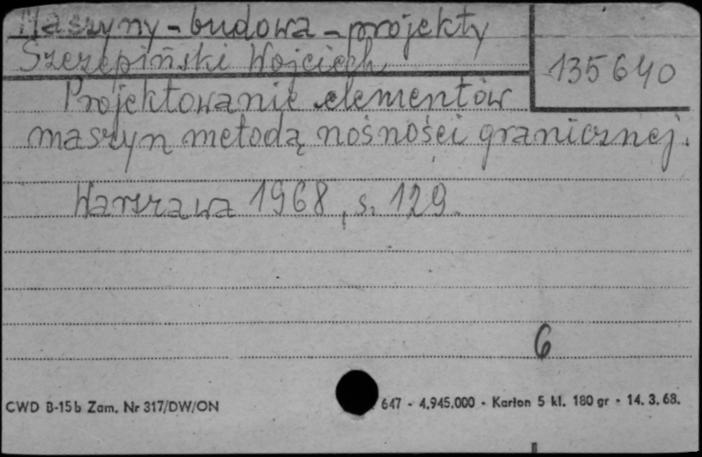 Maszyny - budowa - projekty
Szczepiński Wojciech
135640
Projektowanie elementów
maszyn metodą nośności granicznej.
Warszawa 1968, s. 129.
6
CWD B-15b Zam. Nr 317/DW/ON
647 - 4.945.000 - Karton 5 kl. 180 gr - 14. 3. 68.